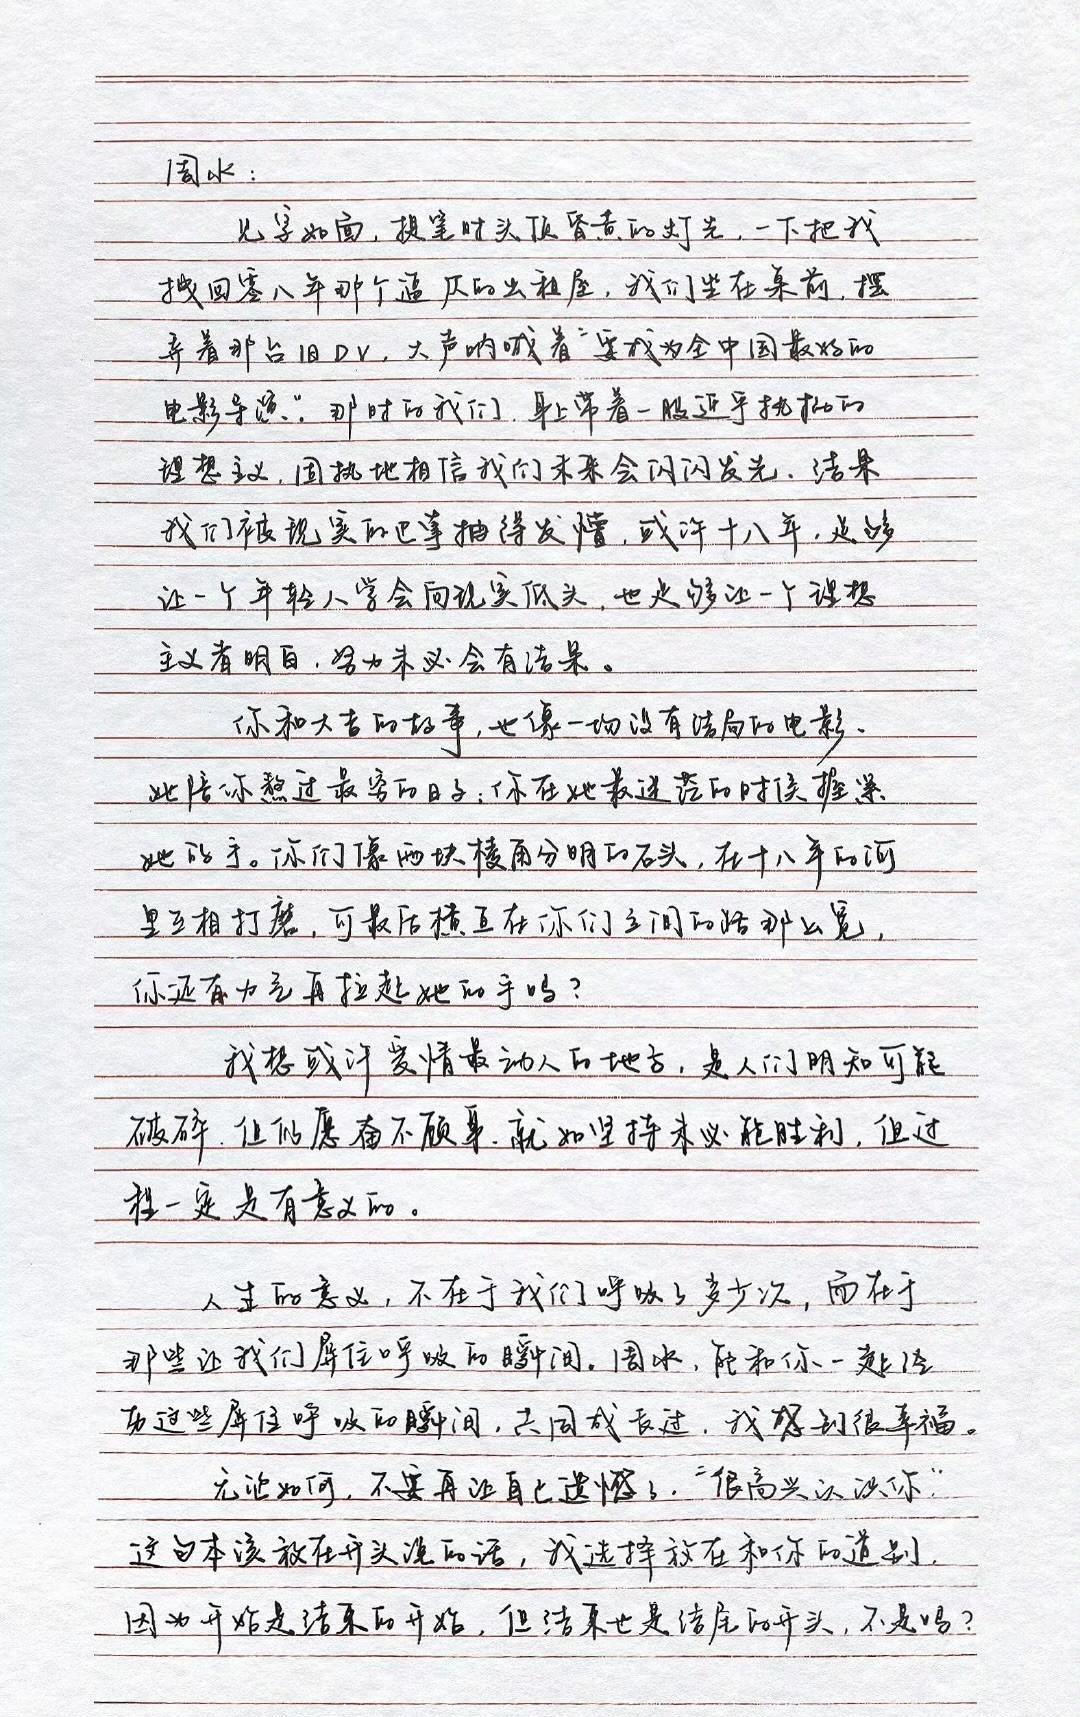 周水：
见字如面，提笔时头顶昏黄的灯光，一下把我
拽回零八年那个逼仄的出租屋，我们坐在桌前，摆
弄着那台旧DV，大声呐喊着“要成为全中国最好的
电影导演”。那时的我们，身上带着一股近乎执拗的
理想主义，固执地相信我们未来会闪闪发光，结果
我们被现实的巴掌抽得发懵，或许十八年，足够
让一个年轻人学会向现实低头，也足够让一个理想
主义者明白，努力未必会有结果。
你和大吉的故事，也像一场没有结局的电影，
她陪你熬过最穷的日子；你在她最迷茫的时候握紧
她的手。你们像两块棱角分明的石头，在十八年的河
里互相打磨，可最后横亘在你们之间的路那么宽，
你还有力气再拉起她的手吗？
我想或许爱情最动人的地方，是人们明知可能
破碎，但仍愿奋不顾身，就如坚持未必能胜利，但过
程一定是有意义的。
人生的意义，不在于我们呼吸了多少次，而在于
那些让我们屏住呼吸的瞬间。周水，能和你一起经
历这些屏住呼吸的瞬间，共同成长过，我感到很幸福。
无论如何，不要再让自己遗憾了，“很高兴认识你”
这句本该放在开头说的话，我选择放在和你的道别，
因为开始是结束的开始，但结束也是结尾的开头，不是吗？